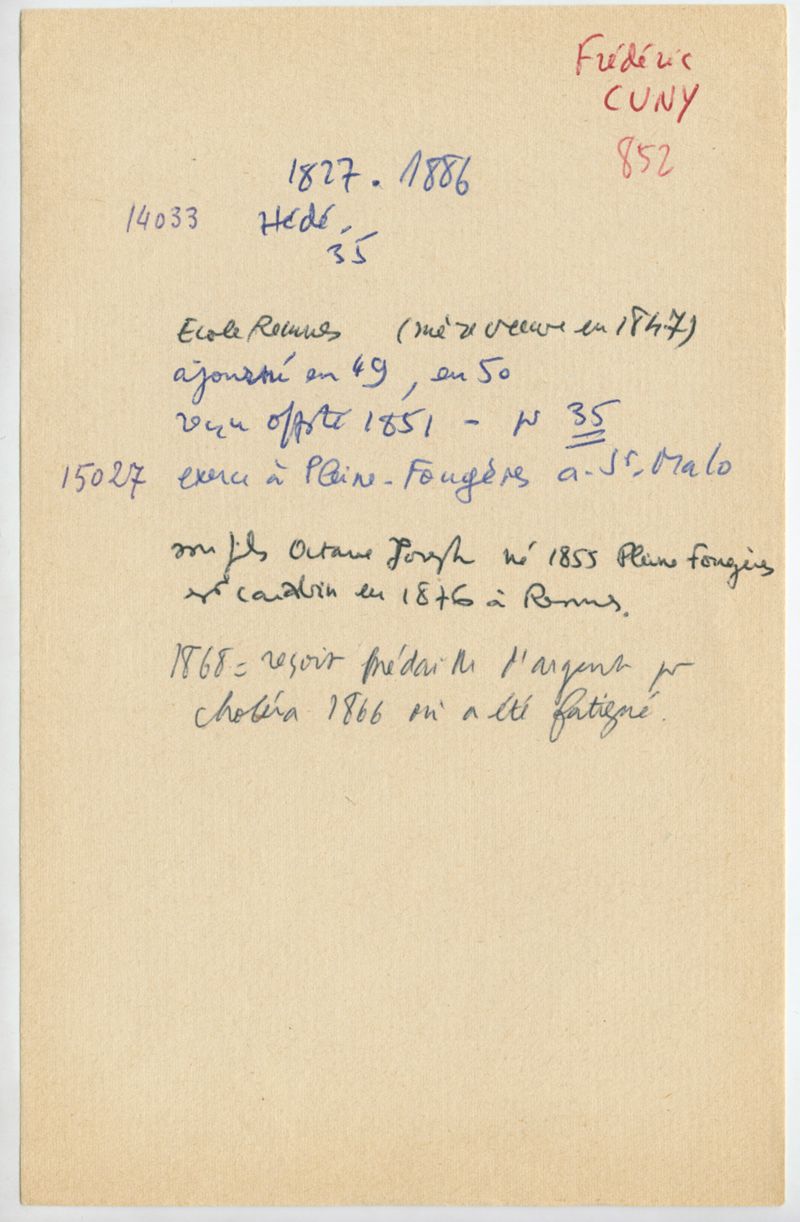 Frédéric
CUNY
852
1827 . 1886
14033 Hédé.
35
Ecole Rennes (mère veuve en 1847)
ajourné en 49, en 50
reçu offté 1851 - pr 35
15027 exerce à Pleine-Fougères a. St. Malo
son fils Octave Joseph né 1855 Pleine Fougères
est en 1876 à Rennes.
1868 = reçoit médaille d'argent pr
choléra 1866 où a été fatigué.